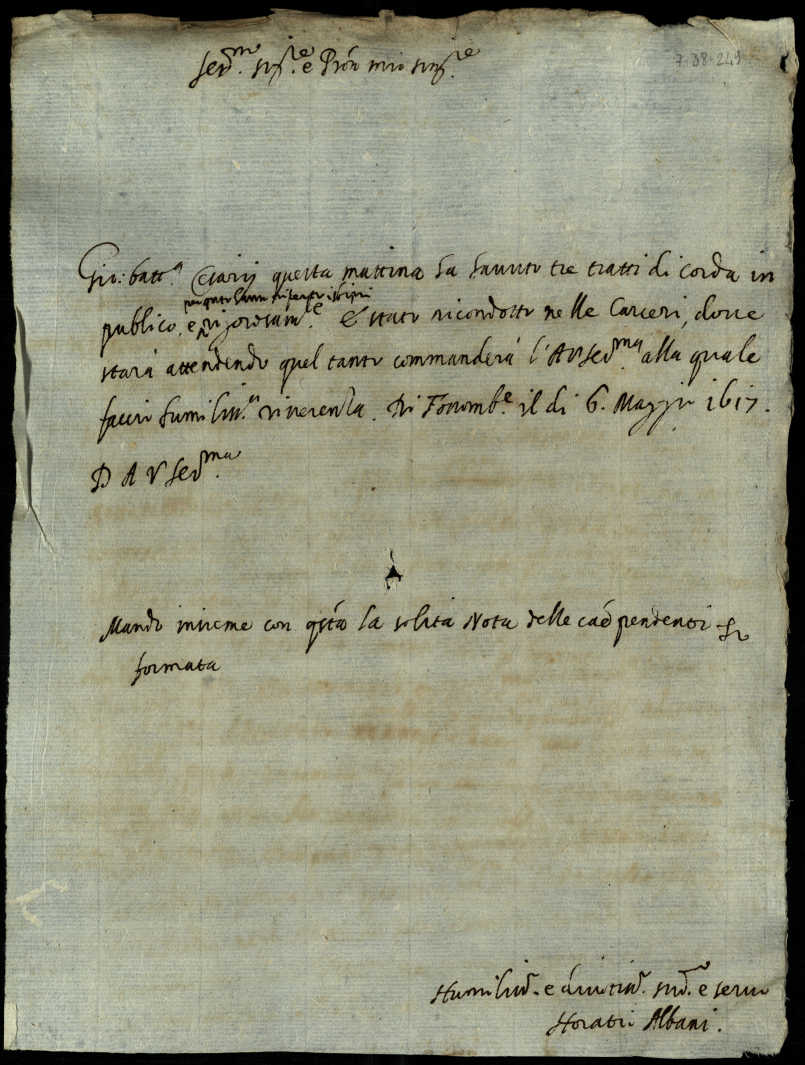 7-38-249
Ser.mo Sig.re e Pron mio sing.re
Gio: batt.a Cesarij questa mattina ha havuto tre tratti di corda in
publico, e rigorosam.te È stato ricondotto nelle Carceri, dove
starà attendendo quel tanto commanderà l'A V Ser.ma alla quale
faccio humiliss.a riverenza. Di Fossomb.e il di 6. Maggio 1617.
D A V Ser.ma
Mando insieme con q.sta la solita Nota delle cað pendenti
formata
Humiliss.o e divotiss.o sud.o e servo
Horatio Albani.